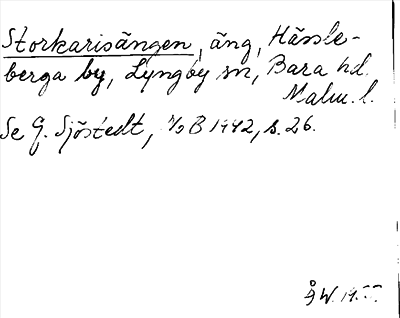 Storkarisängen, äng, Hässle-
berga by, Lyngby sn, Bara hd.
Malm. l.
Se G. Sjöstedt, NoB 1942, s. 26.
Å W. 1955